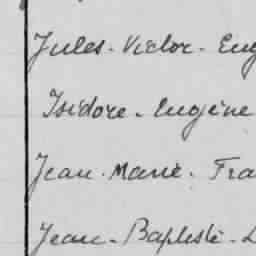 Jules - Victor - Eug
Isidore - Eugène
Jean - Marie - Fra
Jean - Baptiste - L